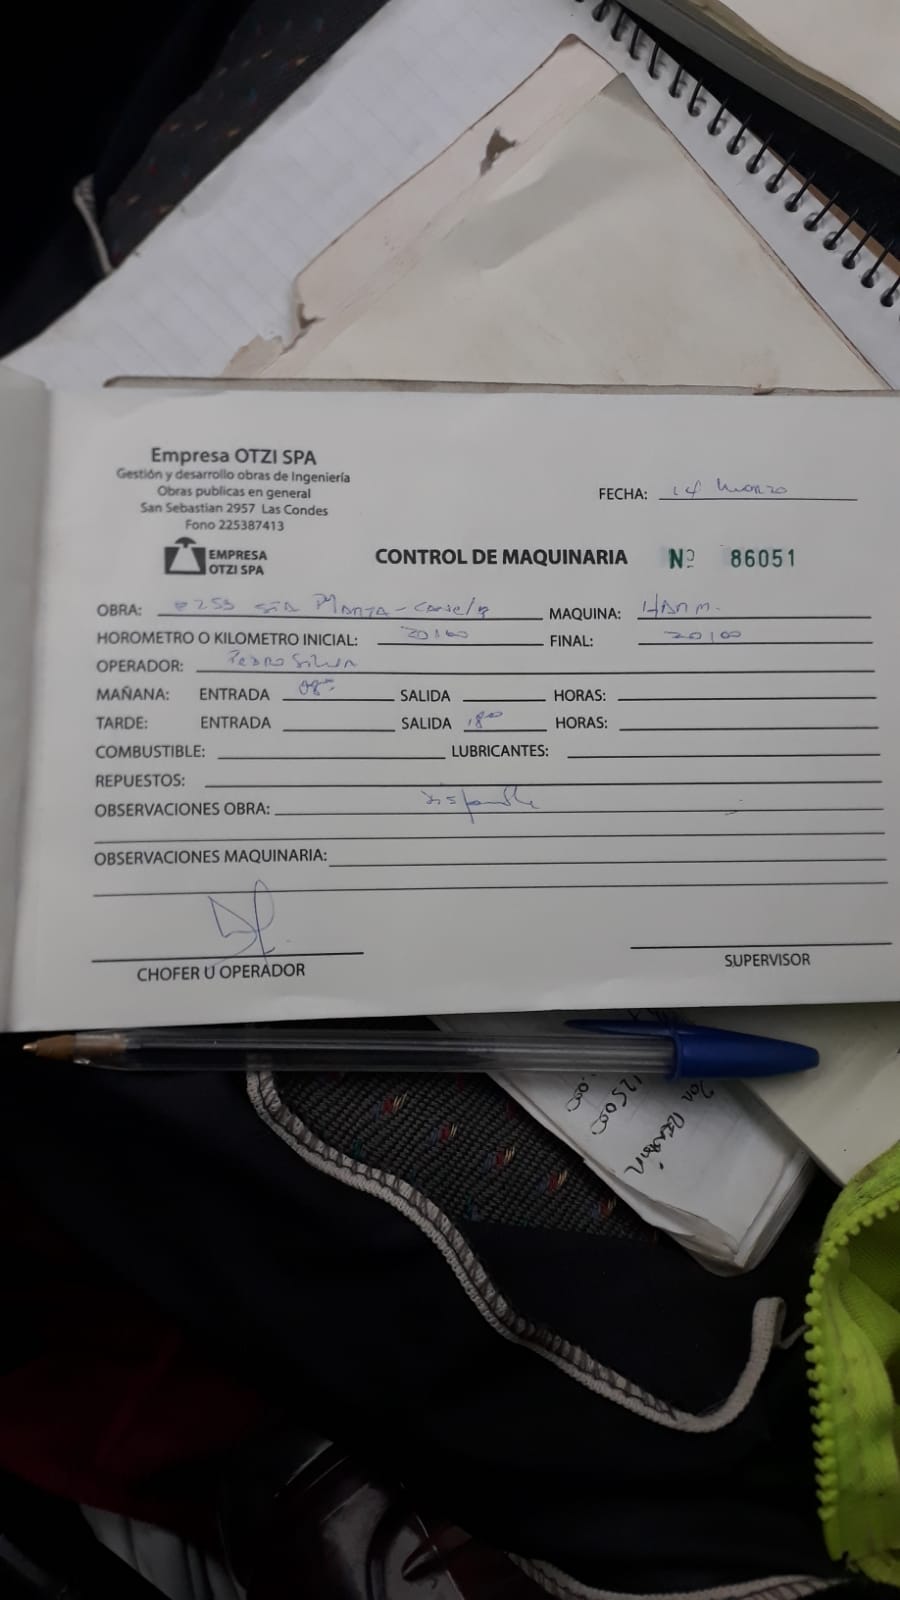 Empresa OTZI SPA
Gestión y desarrollo obras de Ingeniería
Obras publicas en general
San Sebastian 2957 Las Condes
Fono 225387413
EMPRESA
OTZI SPA
FECHA: 14 Marzo
CONTROL DE MAQUINARIA Nº 86051
OBRA: 253 Sta Marta - MAQUINA: HAMM.
HOROMETRO O KILOMETRO INICIAL: 20100 FINAL: 20100
OPERADOR: Pedro Silva
MAÑANA: ENTRADA 08 SALIDA HORAS:
TARDE: ENTRADA SALIDA 18 HORAS:
COMBUSTIBLE: LUBRICANTES:
REPUESTOS:
OBSERVACIONES OBRA: Disponible
OBSERVACIONES MAQUINARIA:
CHOFER U OPERADOR
SUPERVISOR